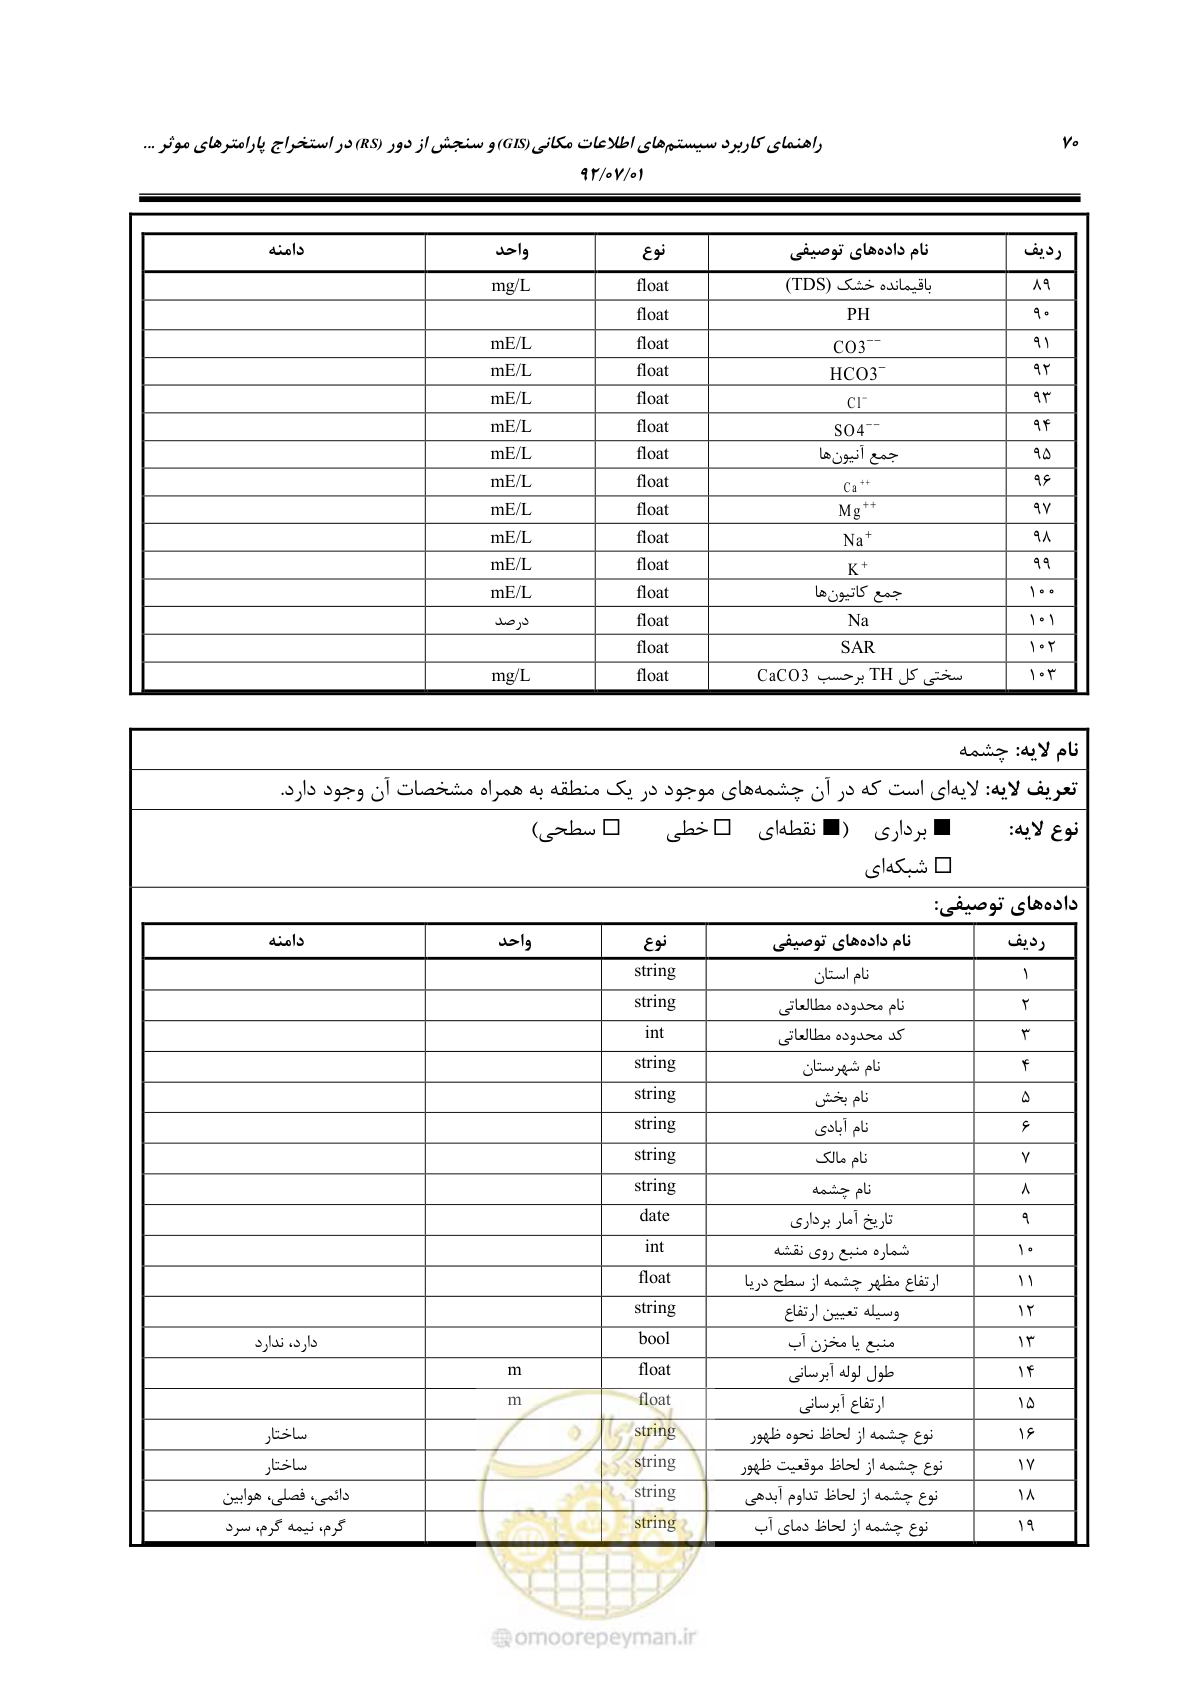 ۷۰ راهنمای کاربرد سیستم‌های اطلاعات مکانی(GIS) و سنجش از دور (RS) در استخراج پارامترهای موثر ...
۹۲/۰۷/۰۱
ردیف نام داده‌های توصیفی نوع واحد دامنه
۸۹ باقیمانده خشک (TDS) float mg/L
۹۰ PH float
۹۱ CO3⁻⁻ float mE/L
۹۲ HCO3⁻ float mE/L
۹۳ Cl⁻ float mE/L
۹۴ SO4⁻⁻ float mE/L
۹۵ جمع آنیون‌ها float mE/L
۹۶ Ca⁺⁺ float mE/L
۹۷ Mg⁺⁺ float mE/L
۹۸ Na⁺ float mE/L
۹۹ K⁺ float mE/L
۱۰۰ جمع کاتیون‌ها float mE/L
۱۰۱ Na float درصد
۱۰۲ SAR float
۱۰۳ سختی کل TH برحسب CaCO3 float mg/L
نام لایه: چشمه
تعریف لایه: لایه‌ای است که در آن چشمه‌های موجود در یک منطقه به همراه مشخصات آن وجود دارد.
نوع لایه: ■ برداری (■ نقطه‌ای □ خطی □ سطحی)
□ شبکه‌ای
داده‌های توصیفی:
ردیف نام داده‌های توصیفی نوع واحد دامنه
۱ نام استان string
۲ نام محدوده مطالعاتی string
۳ کد محدوده مطالعاتی int
۴ نام شهرستان string
۵ نام بخش string
۶ نام آبادی string
۷ نام مالک string
۸ نام چشمه string
۹ تاریخ آمار برداری date
۱۰ شماره منبع روی نقشه int
۱۱ ارتفاع مظهر چشمه از سطح دریا float
۱۲ وسیله تعیین ارتفاع string
۱۳ منبع یا مخزن آب bool دارد، ندارد
۱۴ طول لوله آبرسانی float m
۱۵ ارتفاع آبرسانی float m
۱۶ نوع چشمه از لحاظ نحوه ظهور string ساختار
۱۷ نوع چشمه از لحاظ موقعیت ظهور string ساختار
۱۸ نوع چشمه از لحاظ تداوم آبدهی string دائمی، فصلی، هوابین
۱۹ نوع چشمه از لحاظ دمای آب string گرم، نیمه گرم، سرد
امور پیمان
@omoorepeyman.ir